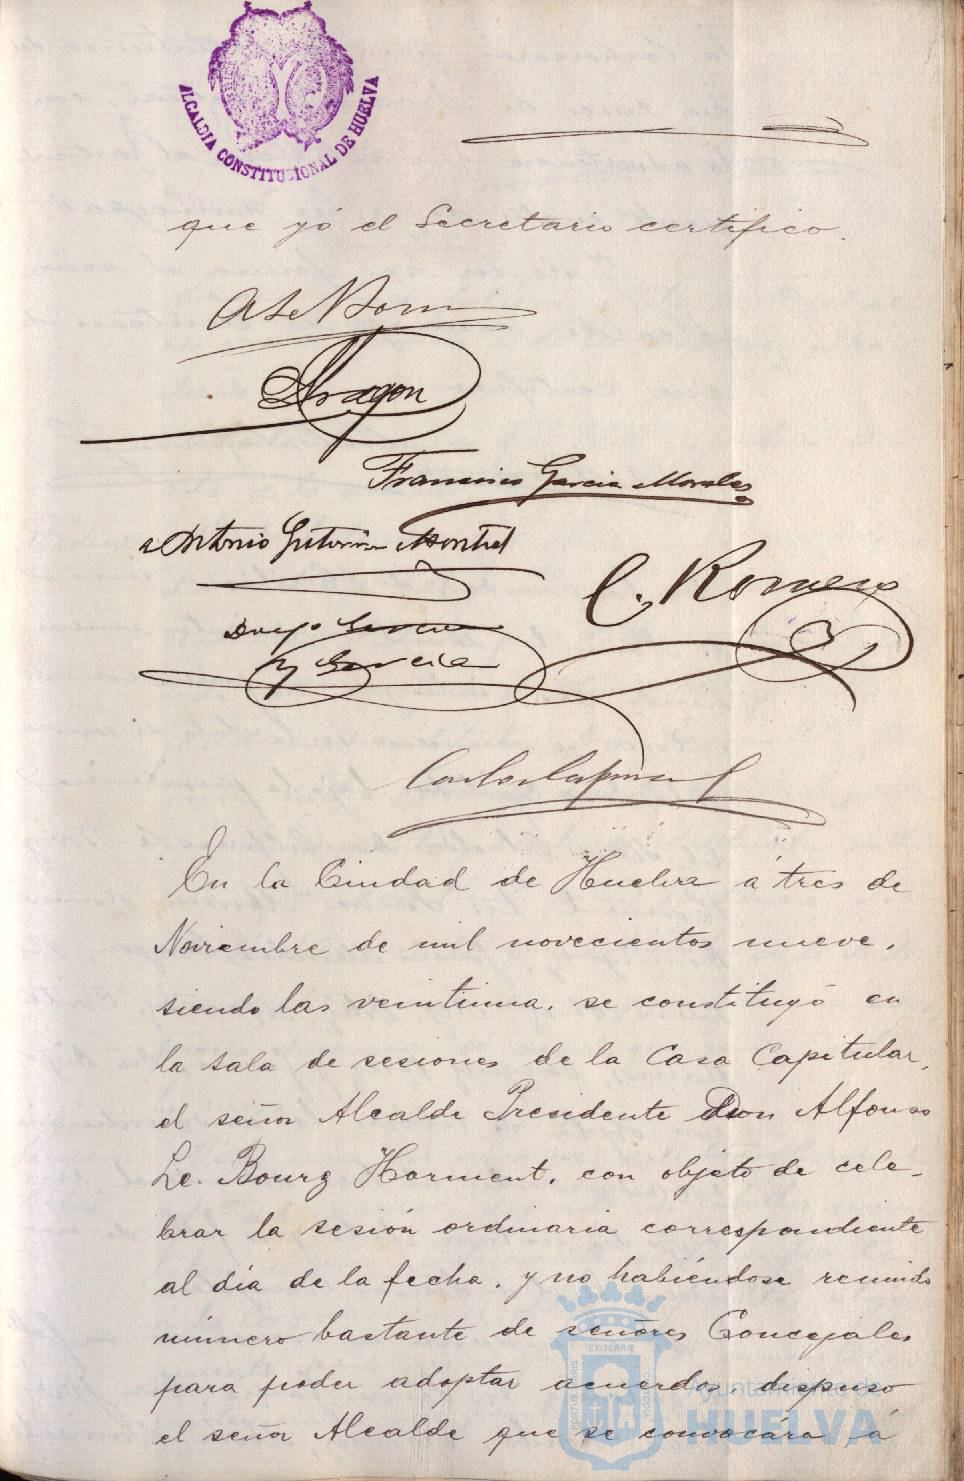 ALCALDIA CONSTITUCIONAL DE HUELVA
que yó el Secretario certifico.
Aragon
Francisco Garcia Morales
Antonio Gutierrez Montiel
C. Romero
Diego
y Garcia
Carlos
En la Ciudad de Huelva á tres de
Noviembre de mil novecientos nueve,
siendo las veintiuna, se constituyó en
la sala de sesiones de la Casa Capitular,
el señor Alcalde Presidente Don Alfonso
Le. Bourg Horment, con objeto de cele-
brar la sesión ordinaria correspondiente
al día de la fecha, y no habiéndose reunido
número bastante de señores Concejales
para poder adoptar acuerdos, dispuso
el señor Alcalde que se convocára á
Ayuntamiento de
HUELVA